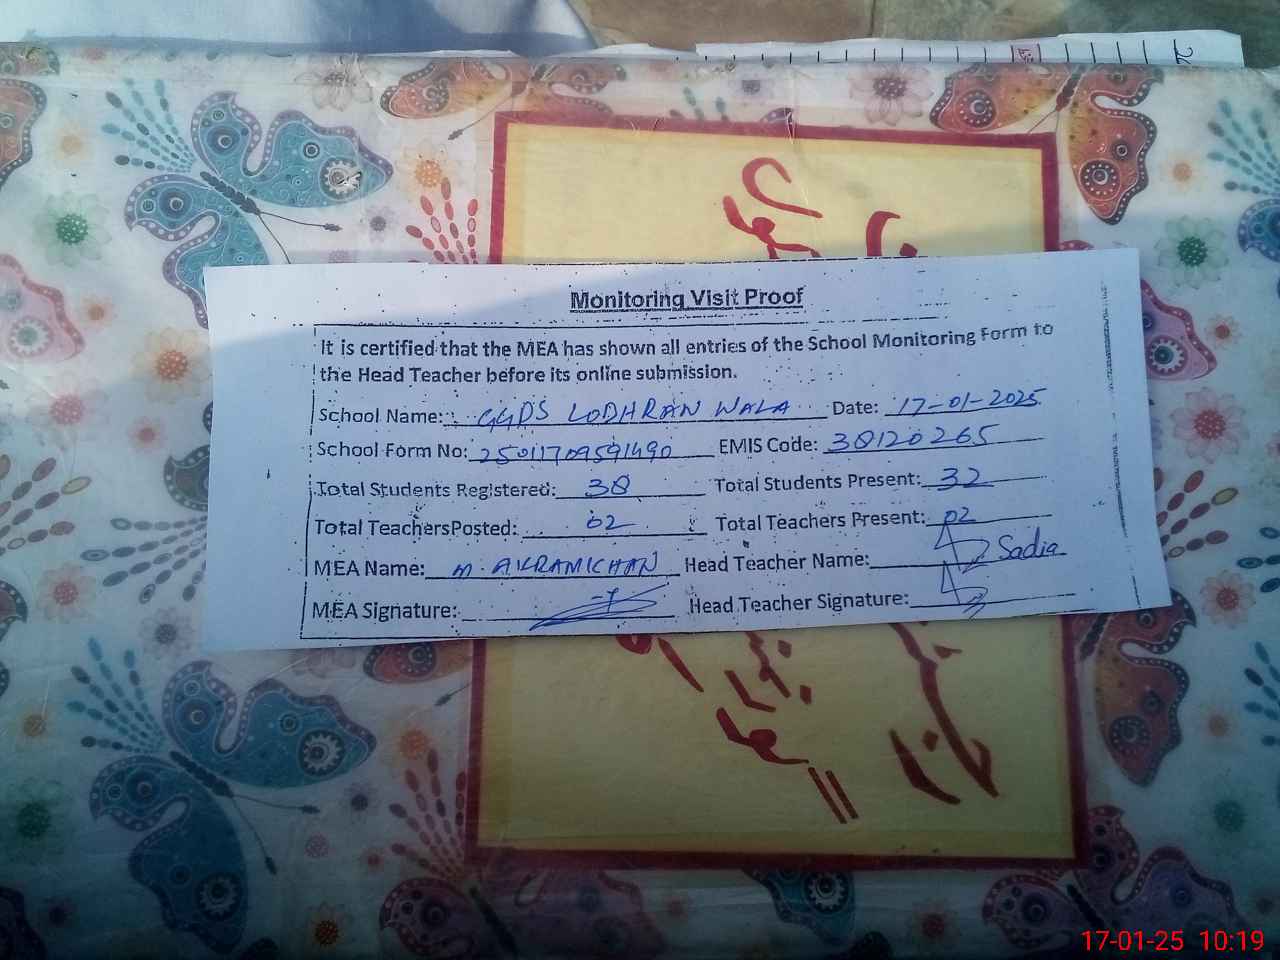 Monitoring Visit Proof
It is certified that the MEA has shown all entries of the School Monitoring Form to
the Head Teacher before its online submission.
School Name: GGPS LODHRAN WALA Date: 17-01-2025
School Form No: EMIS Code: 38120265
Total Students Registered: 38 Total Students Present: 32
Total TeachersPosted: 02 Total Teachers Present: 02
MEA Name: M. AKRAM KHAN Head Teacher Name: Sadia
MEA Signature: Head Teacher Signature:
17-01-25 10:19